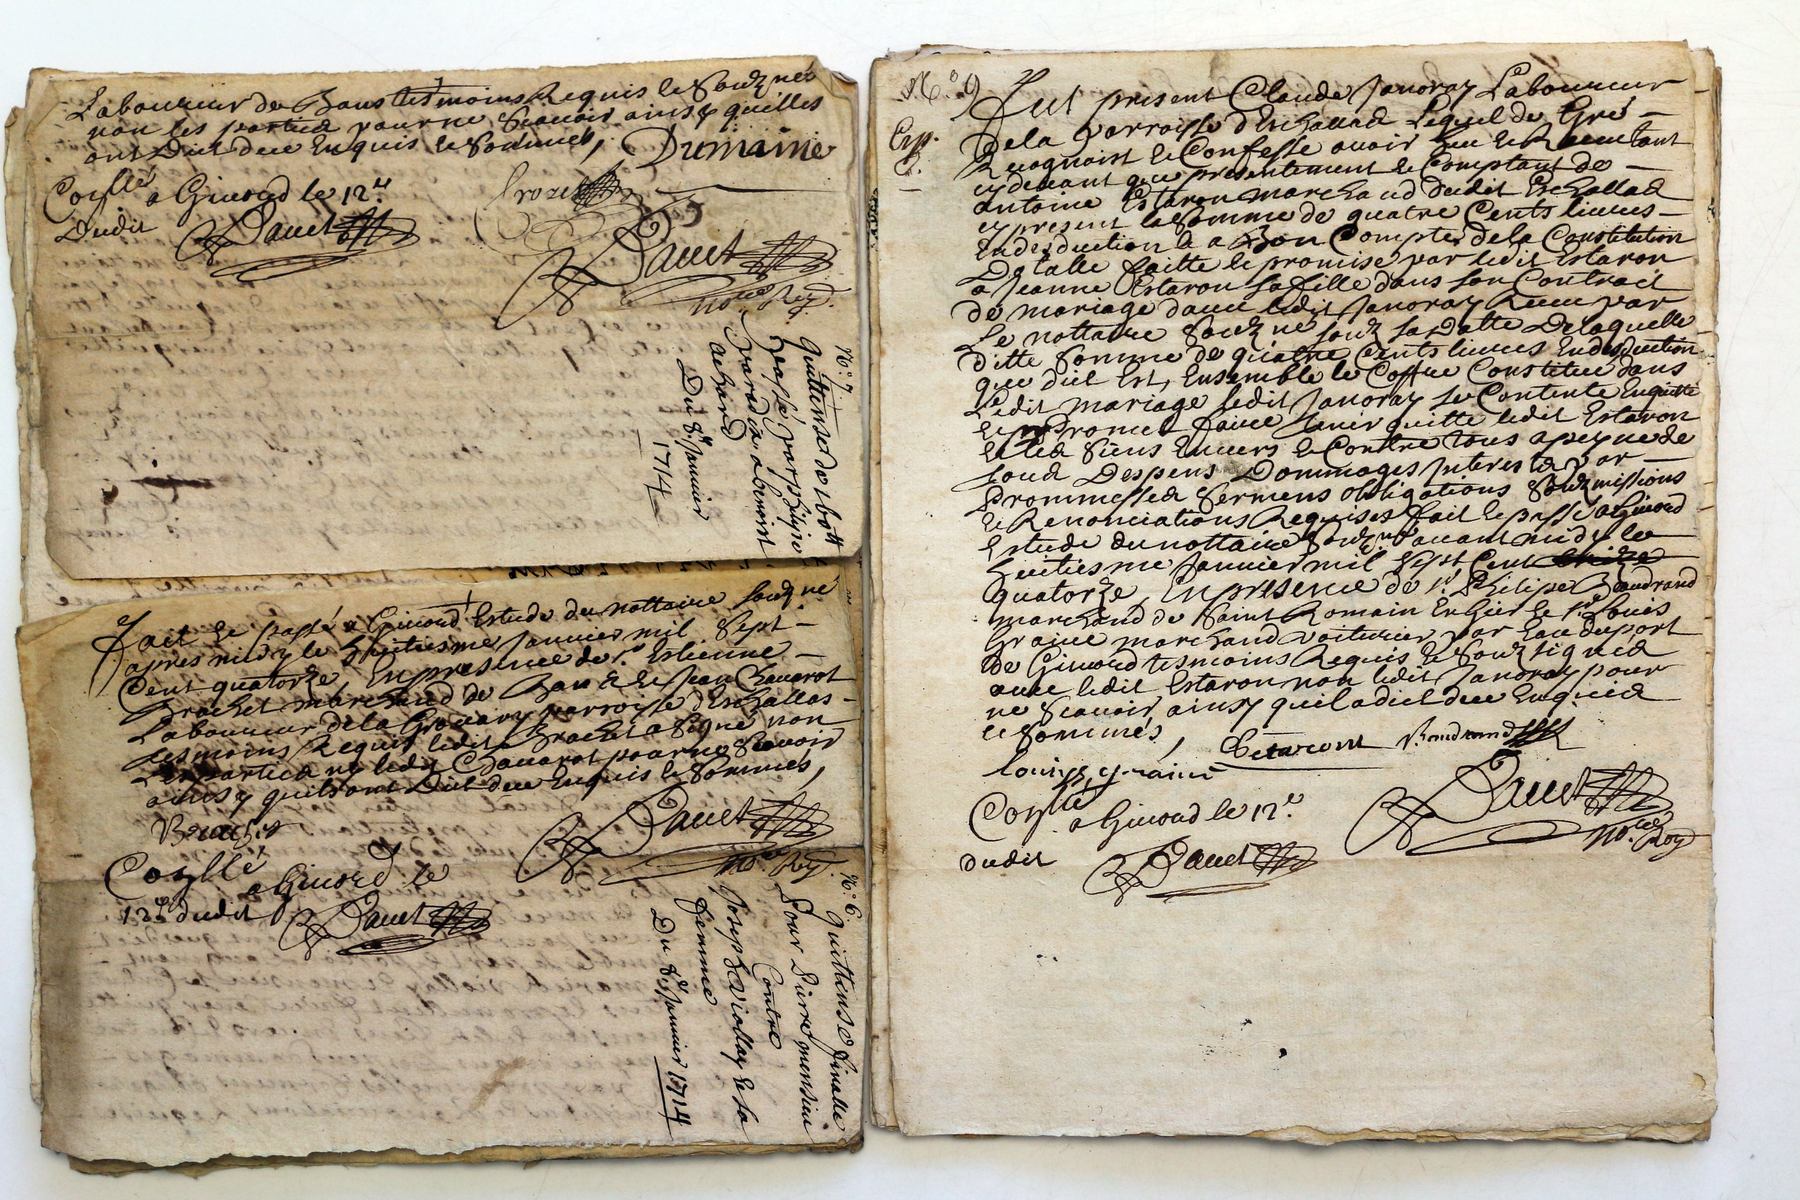 Laboureur de Bans tesmoins Requis le Souz né
non les partiea pour ne Scauoir ainsy quilles
ont Dict deüe Enquis et Sommés, Dumaine
Coyllé a Giuord le 12e
Dudit Dauet
Dauet
no.re Roy.
N.o 7
quittense de 1 bott
par philipe
Du 8e Januier
1714
Fait et passé a Giuord Estude du nottaire souz né
apres midy le huitiesme Januier mil Sept
Cent quatorze, En presence de sr. Estienne
Brachet marchand de Bans et Jean Chauarot
Laboureur de la parroisse d'Eschallas
tesmoins Requis ledit Brachet a Signé non
les partiea ny ledit Chauarot pour ne Scauoir
ainsy quils ont Dict deüe Enquis et Sommés,
Brachet
Dauet
no.re Roy.
Coyllé a Giuord le
12e dudit Dauet
N.o 6
Quittense finalle
Pour Pierre
Contre
Joseph Viollay et sa
femme
Du 8e Januier 1714
N.o 9
Exp.
Fut present Claude Janoray Laboureur
De la parroisse d'Eschallas Lequel de Gré
Recognoist et Confesse auoir heu et Receu tant
cy deuant que presentement et Comptant de
antoine Estaron marchand dudit Eschallas
cy present la Somme de quatre Cents liures
En desduction et a Bon Compte de la Constitution
Dotalle faitte et promise par ledit Estaron
a Jeanne Estaron sa fille dans son Contract
de mariage dauec ledit Janoray Receu par
Le nottaire Souz né souz sa datte De laquelle
Ditte Somme de quatre Cents liures En desduction
que dict Est, Ensemble le Coffre Constitué dans
Ledit mariage ledit Janoray se Contente En quitte
et Promet faire tenir quitte ledit Estaron
et les Siens Enuers et Contre tous a peyne de
tous Despens Dommages Interesta par
Prommessea Sermens obligations Souzmissions
et Renonciations Requises fait et passé a Giuord
Estude du nottaire Souz né auant midy le
huitiesme Januier mil Sept Cent
quatorze, En presence de sr. Philipe Baudrand
marchand de Saint Romain En Gier et sr. Louis
Graine marchand voiturier par Eau du port
de Giuord tesmoins Requis et Souz signea
auec ledit Estaron non ledit Janoray pour
ne Scauoir ainsy quil a dict deüe Enquis
et Sommés,
Estaron Baudrand
Louis graine
Dauet
no.re Roy
Coyllé a Giuord le 12e
dudit Dauet